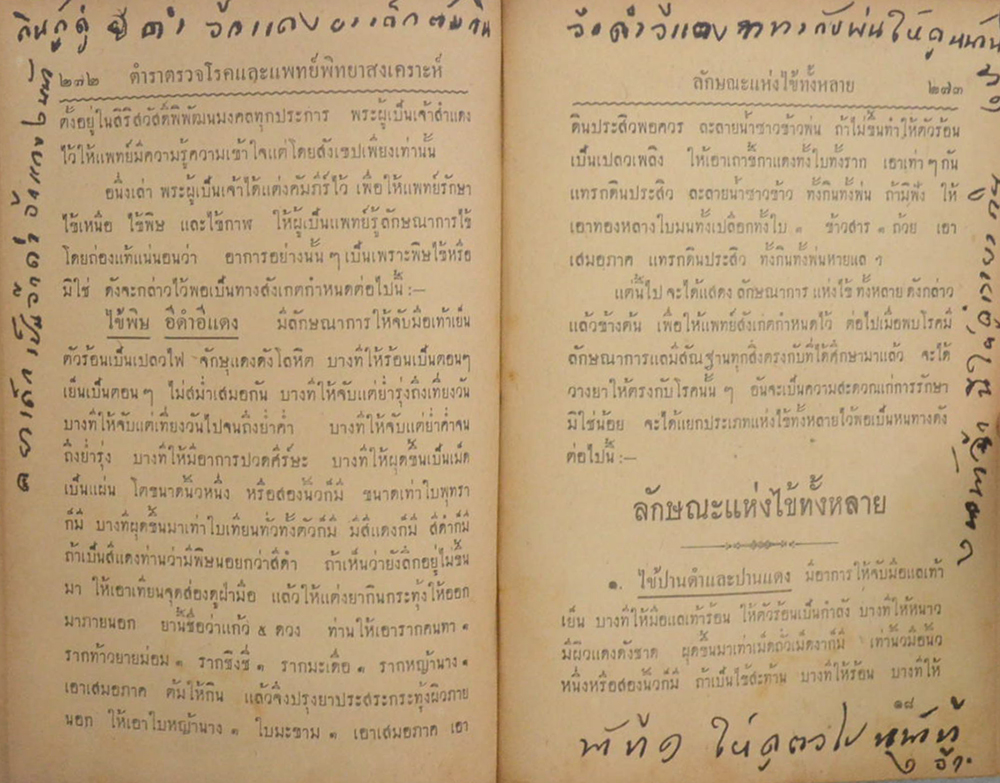 ๒๗๒ ตำราตรวจโรคและแพทย์พิทยาสงเคราะห์
ตั้งอยู่ในสิริสวัสดิ์พิพัฒนมงคลทุกประการ พระผู้เป็นเจ้าสำแดง
ไว้ให้แพทย์มีความรู้ความเข้าใจแต่โดยสังเขปเพียงเท่านั้น
อนึ่งเล่า พระผู้เป็นเจ้าได้แต่งคัมภีร์ไว้ เพื่อให้แพทย์รักษา
ไข้เหนือ ไข้พิษ และไข้กาฬ ให้ผู้เป็นแพทย์รู้ลักษณาการไข้
โดยถ่องแท้แน่นอนว่า อาการอย่างนั้น ๆ เป็นเพราะพิษไข้หรือ
มิใช่ ดังจะกล่าวไว้พอเป็นทางสังเกตกำหนดต่อไปนี้ :—
ไข้พิษ อีดำอีแดง มีลักษณาการให้จับมือเท้าเย็น
ตัวร้อนเป็นเปลวไฟ จักษุแดงดังโลหิต บางทีให้ร้อนเป็นตอนๆ
เย็นเป็นตอนๆ ไม่สม่ำเสมอกัน บางทีให้จับแต่ย่ำรุ่งถึงเที่ยงวัน
บางทีให้จับแต่เที่ยงวันไปจนถึงย่ำค่ำ บางทีให้จับแต่ย่ำค่ำจน
ถึงย่ำรุ่ง บางทีให้มีอาการปวดศีร์ษะ บางทีให้ผุดขึ้นเป็นเม็ด
เป็นแผ่น โตขนาดนิ้วหนึ่ง หรือสองนิ้วก็มี ขนาดเท่าใบพุทรา
ก็มี บางทีผุดขึ้นมาเท่าใบเทียนทั่วทั้งตัวก็มี มีสีแดงก็มี สีดำก็มี
ถ้าเป็นสีแดงท่านว่ามีพิษน้อยกว่าสีดำ ถ้าเห็นว่ายังลึกอยู่ไม่ขึ้น
มา ให้เอาเทียนจุดส่องดูฝ่ามือ แล้วให้แต่งยากินกระทุ้งให้ออก
มาภายนอก ยานี้ชื่อว่าแก้ว ๕ ดวง ท่านให้เอารากคนทา ๑
รากท้าวยายม่อม ๑ รากชิงชี่ ๑ รากมะเดื่อ ๑ รากหญ้านาง ๑
เอาเสมอภาค ต้มให้กิน แล้วจึงปรุงยาประสระกระทุ้งผิวภาย
นอก ให้เอาใบหญ้านาง ๑ ใบมะขาม ๑ เอาเสมอภาค เอา
ลักษณะแห่งไข้ทั้งหลาย ๒๗๓
ดินประสิวพอควร ละลายน้ำซาวข้าวพ่น ถ้าไม่ขึ้นทำให้ตัวร้อน
เป็นเปลวเพลิง ให้เอาเถาขี้กาแดงทั้งใบทั้งราก เอาเท่าๆกัน
แทรกดินประสิว ละลายน้ำซาวข้าว ทั้งกินทั้งพ่น ถ้ามิฟัง ให้
เอาทองหลางใบมนทั้งเปลือกทั้งใบ ๑ ข้าวสาร ๑ ถ้วย เอา
เสมอภาค แทรกดินประสิว ทั้งกินทั้งพ่นหายแล ฯ
แต่นี้ไป จะได้แสดง ลักษณาการ แห่งไข้ ทั้งหลาย ดังกล่าว
แล้วข้างต้น เพื่อให้แพทย์สังเกตกำหนดไว้ ต่อไปเมื่อพบโรคมี
ลักษณาการแลมีสัณฐานทุกสิ่งตรงกับที่ได้ศึกษามาแล้ว จะได้
วางยาให้ตรงกับโรคนั้น ๆ อันจะเป็นความสะดวกแก่การรักษา
มิใช่น้อย จะได้แยกประเภทแห่งไข้ทั้งหลายไว้พอเป็นหนทางดัง
ต่อไปนี้ :—
ลักษณะแห่งไข้ทั้งหลาย
๑. ไข้ปานดำและปานแดง มีอาการให้จับมือแลเท้า
เย็น บางทีให้มือแลเท้าร้อน ให้ตัวร้อนเป็นกำลัง บางทีให้หนาว
มีผิวแดงดังชาด ผุดขึ้นมาเท่าเม็ดถั่วเม็ดงาก็มี เท่านิ้วมือนิ้ว
หนึ่งหรือสองนิ้วก็มี ถ้าเป็นไข้สะท้าน บางทีให้ร้อน บางทีให้
๑๘